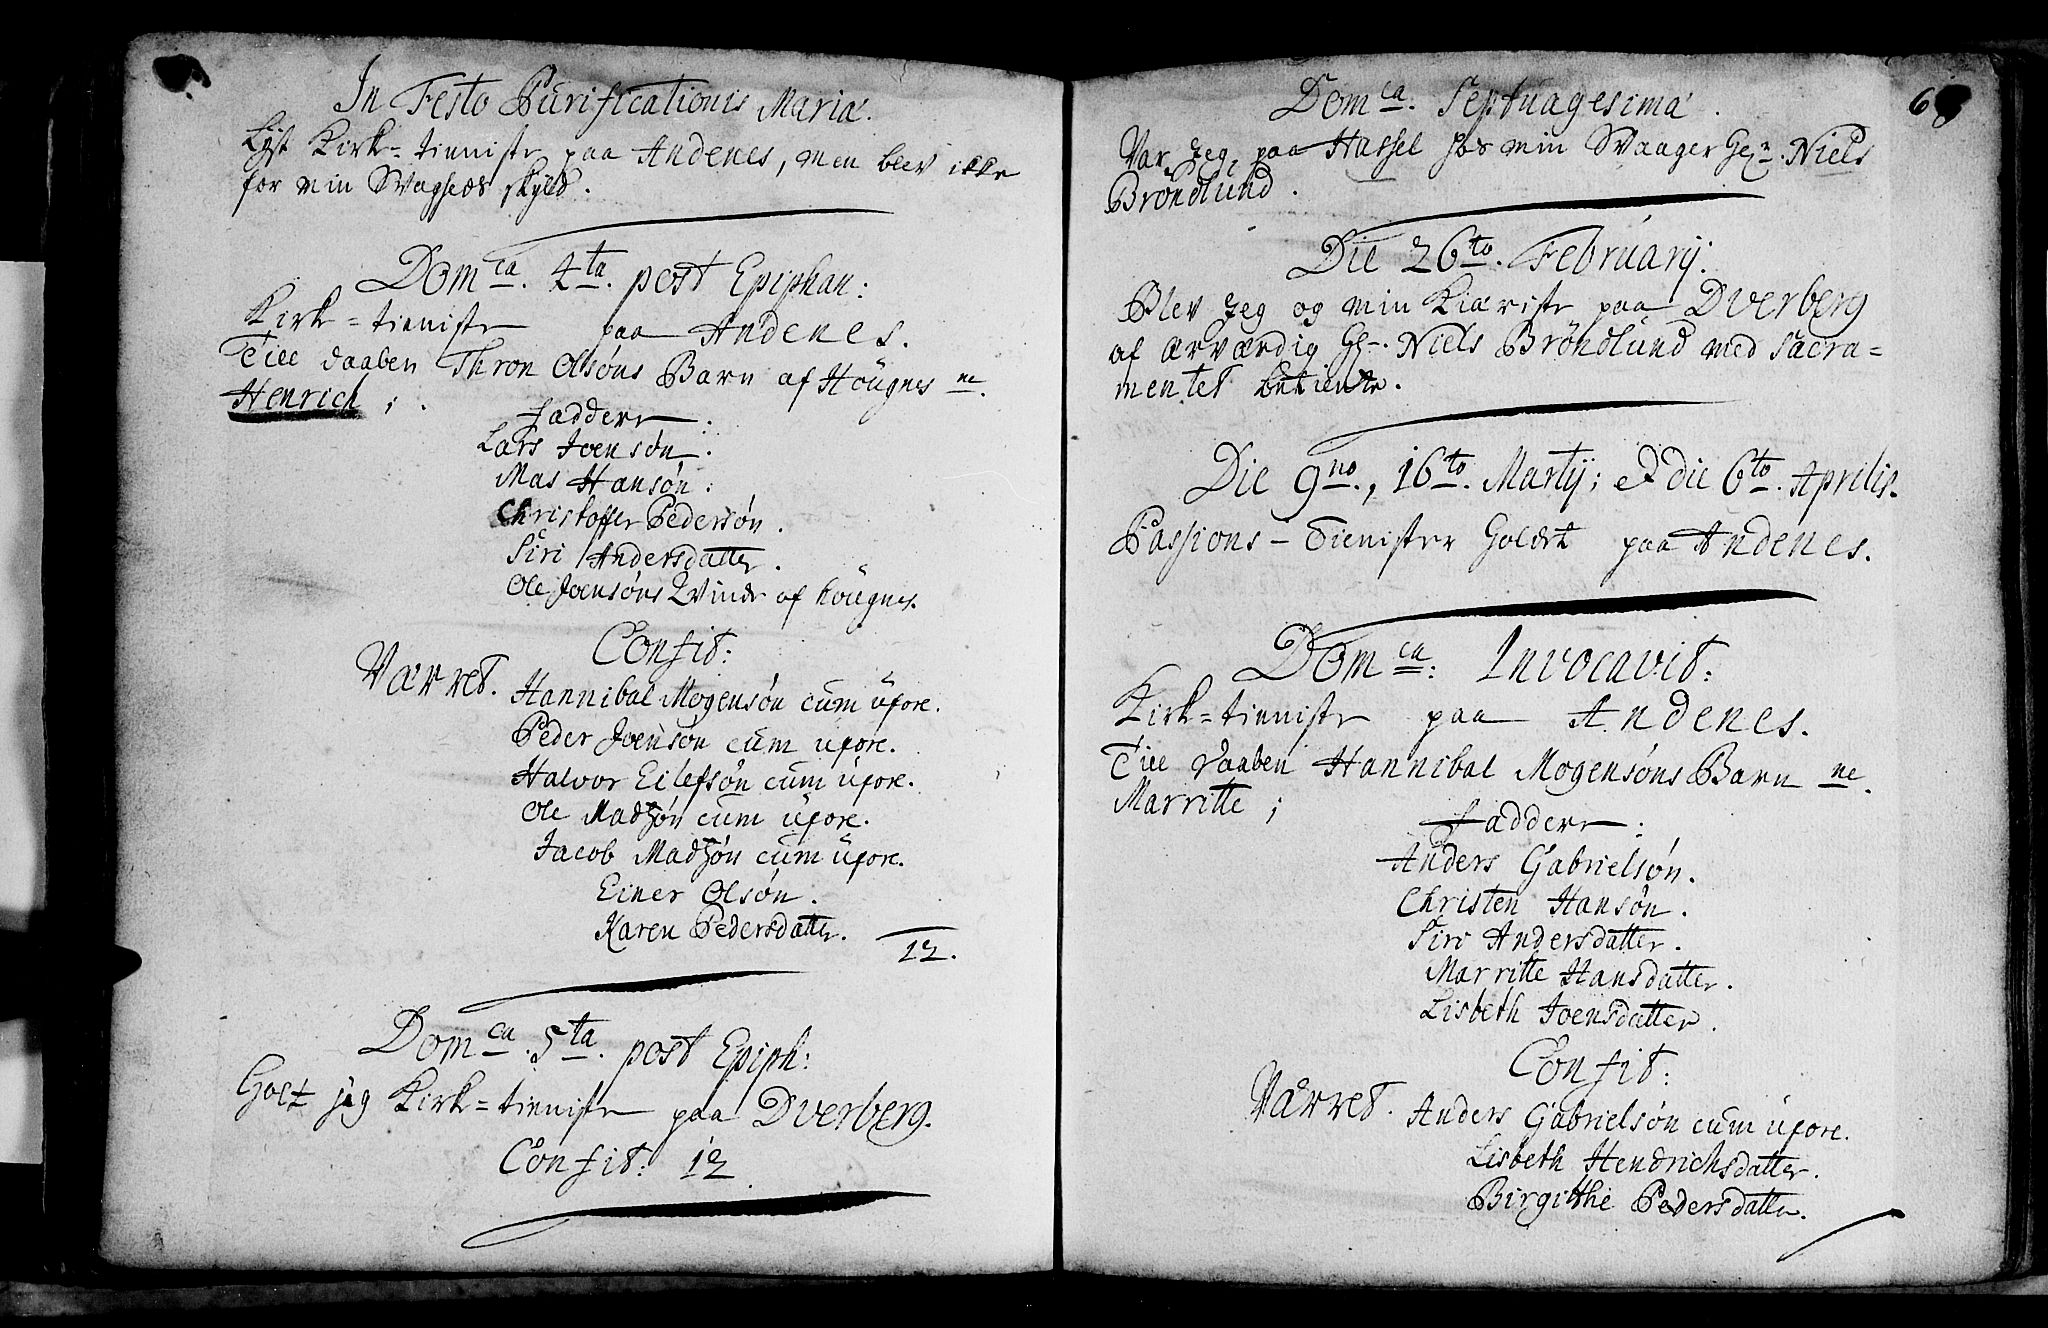 In Festo Purificationis Mariæ.
Lyst Kirk-tieniste paa Andenes, men blev ikke
for min Svagheds skyld.
Domca. 4ta. post Epiphan:
Kirk-tieniste paa Andenes.
Till daaben Thron Olsøns Barn af Høugnes ne.
Henrich;
Faddere:
Lars Joensøn.
Mas Hansøn.
Christoffer Pedersøn.
Siri Andersdatter.
Ole Joensøns Qvinde af Høugnes.
Confit:
Værret. Hannibal Mogensøn cum uxore.
Peder Joensøn cum uxore.
Halvor Eilefsøn cum uxore.
Ole Madzøn cum uxore.
Jacob Madzøn cum uxore.
Einer Olsøn.
Karen Pedersdatter.
12.
Domca. 5ta. post Epiph:
Holt jeg Kirk-tieniste paa Dverberg.
Confit: 12
6
Domca. Septuagesima.
Var jeg paa Hassel hos min Svaager Hr. Niels
Brøndlund.
Die 26to. February.
Blev jeg og min Kiæreste paa Dverberg
af ærværdig Hr. Niels Brøndlund med Sacra=
mentet betiente.
Die 9no., 16to. Martij; et die 6to. Aprilis.
Passions-Tienister holdet paa Andenes.
Domca: Invocavit:
Kirk-tieniste paa Andenes.
Till daaben Hannibal Mogensøns Barn ne.
Marritte;
Faddere:
Anders Gabrielsøn.
Christen Hansøn.
Siri Andersdatter.
Marritte Hansdatter.
Lisbeth Joensdatter.
Confit:
Værret. Anders Gabrielsøn cum uxore.
Lisbeth Hendrichsdatter.
Birgithe Pedersdatter.